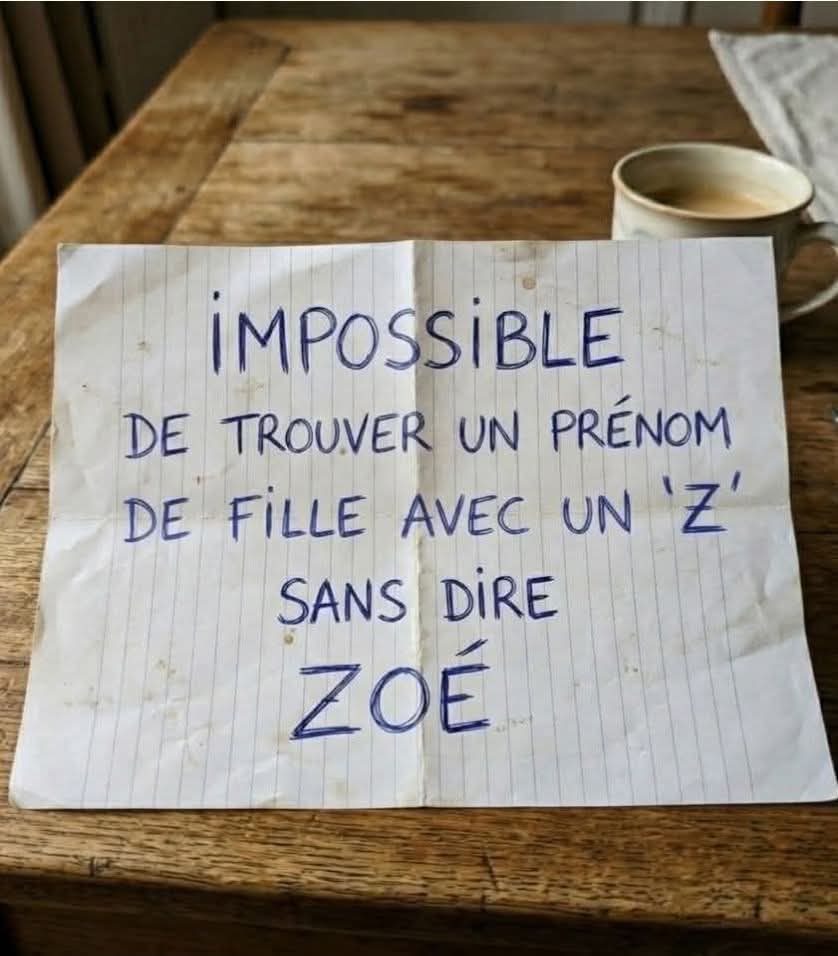 IMPOSSIBLE
DE TROUVER UN PRÉNOM
DE FILLE AVEC UN 'Z'
SANS DIRE
ZOÉ